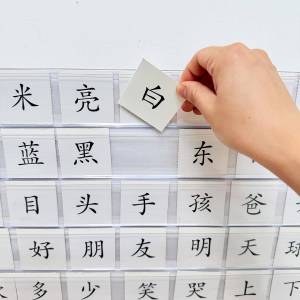 米 亮 白
蓝 黑 东
目 头 手 孩 爸
好 朋 友 明 天 球
多 少 笑 哭 上 下